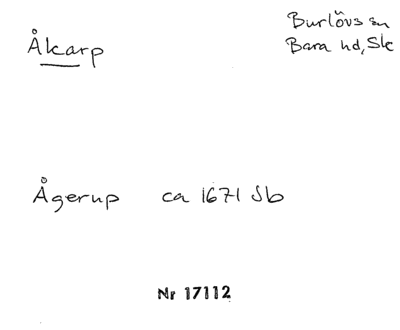 Åkarp
Burlövs sn
Bara hd, Sk
Ågerup ca 1671 Jb
Nr 17112